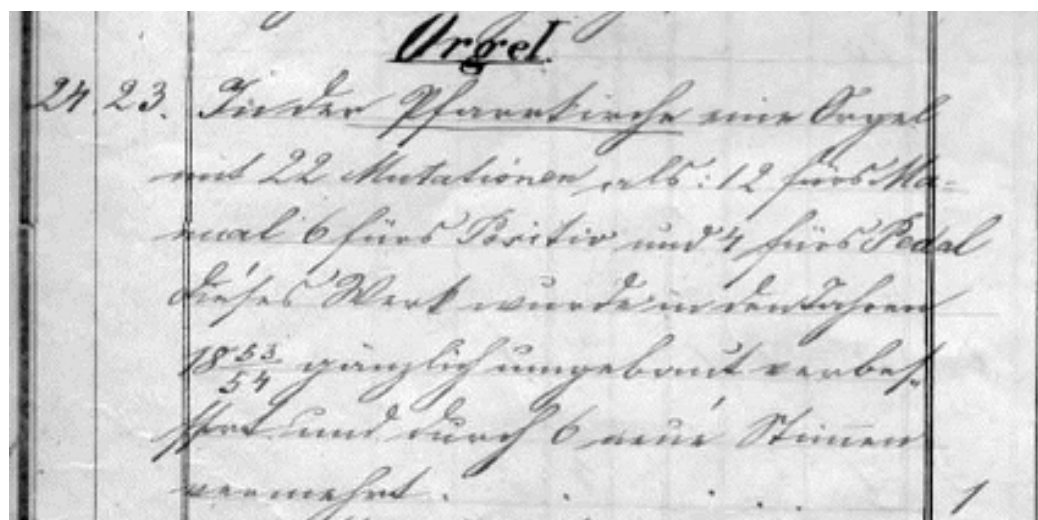 Orgel.
24 23. In der Pfarrkirche eine Orgel
mit 22 Mutationen als: 12 fürs Ma-
nual 6 fürs Positiv und 4 fürs Pedal
dieses Werk wurde in den Jahren
18 53/54 gänzlich umgebaut verbes-
sert und durch 6 neue Stimmen
vermehrt . . . . 1